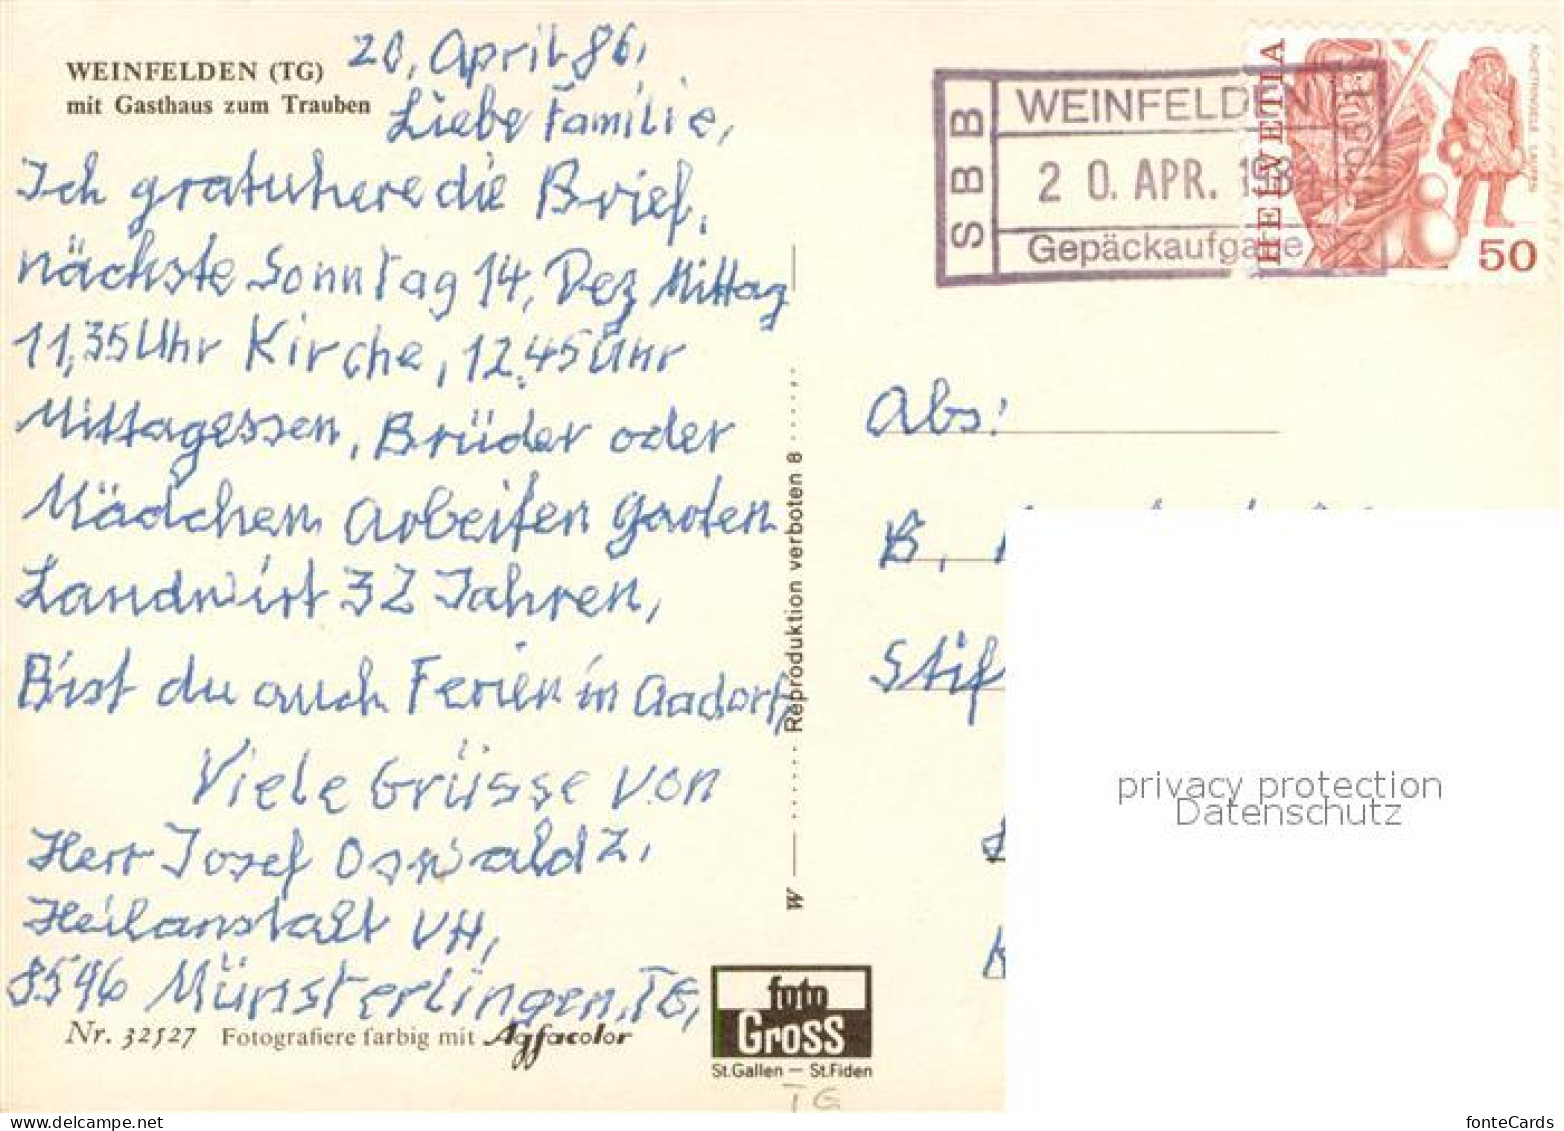 WEINFELDEN (TG)
mit Gasthaus zum Trauben
20, April 86,
Liebe Familie,
Ich gratuhere die Brief,
nächste Sonntag 14, Dez Mittag
11,35 Uhr Kirche, 12.45 Uhr
Mittagessen, Brüder oder
Mädchen Arbeiten garten
Landwirt 32 Jahren,
Bist du auch Ferien in Aadorf,
Viele Grüsse von
Herr Josef Oswald Z,
Heilanstalt VH,
8596 Münsterlingen, TG,
Nr. 32527 Fotografiere farbig mit Agfacolor
foto
GROSS
St.Gallen — St.Fiden
TG
W
Reproduktion verboten 8
SBB
WEINFELDEN
20. APR.
Gepäckaufgabe
HELVETIA
50
ACHETRINGELE LAUPEN
Abs:
B,
Stif
privacy protection
Datenschutz
fonteCards